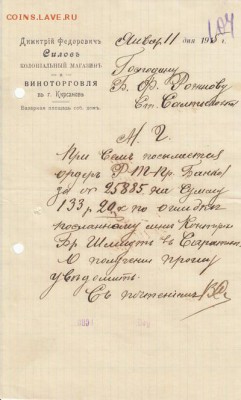 Димитрій Федоровичъ
Силовъ
КОЛОНІАЛЬНЫЙ МАГАЗИНЪ
и
ВИНОТОРГОВЛЯ
въ г. Кирсановѣ
Базарная площадь соб. домъ.
Январ. 11 дня 19
Господину
В. Ф.
Ст.
М. Г.
При семъ посылается
ордеръ Р-Т-Пр. Банка
за № 25885 на сумму
133 р 20 к по ошибкѣ
посланному мнѣ Конторы
Бр. Шмидтъ въ Саратовѣ
О полученіи прошу
увѣдомить
Съ почтеніемъ